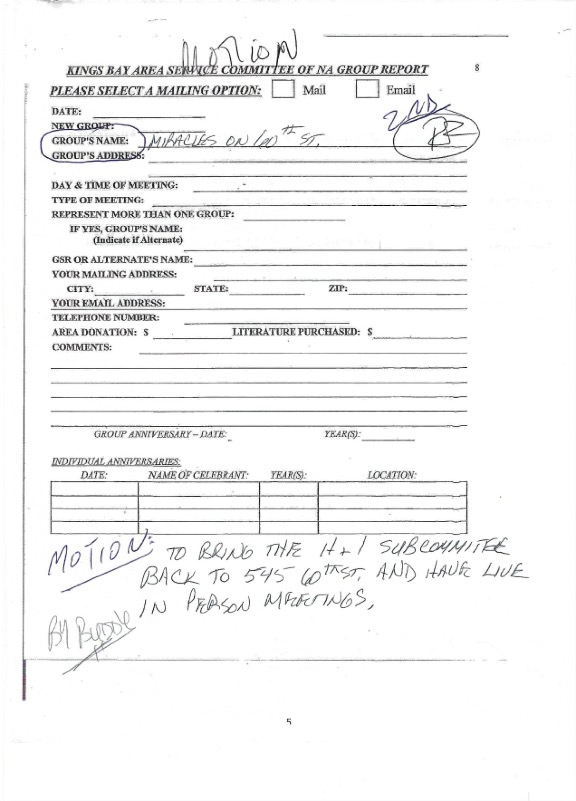 MOTION
KINGS BAY AREA SERVICE COMMITTEE OF NA GROUP REPORT 8
PLEASE SELECT A MAILING OPTION: Mail Email
DATE: 2ND
NEW GROUP:
GROUP'S NAME: MIRACLES ON 60TH ST.
GROUP'S ADDRESS:
DAY & TIME OF MEETING:
TYPE OF MEETING:
REPRESENT MORE THAN ONE GROUP:
IF YES, GROUP'S NAME:
(Indicate if Alternate)
GSR OR ALTERNATE'S NAME:
YOUR MAILING ADDRESS:
CITY: STATE: ZIP:
YOUR EMAIL ADDRESS:
TELEPHONE NUMBER:
AREA DONATION: $ LITERATURE PURCHASED: $
COMMENTS:
GROUP ANNIVERSARY – DATE: YEAR(S):
INDIVIDUAL ANNIVERSARIES:
DATE: NAME OF CELEBRANT: YEAR(S): LOCATION:
MOTION: TO BRING THE H+I SUBCOMMITEE
BACK TO 545 60TH ST. AND HAVE LIVE
IN PERSON MEETINGS,
BY
5